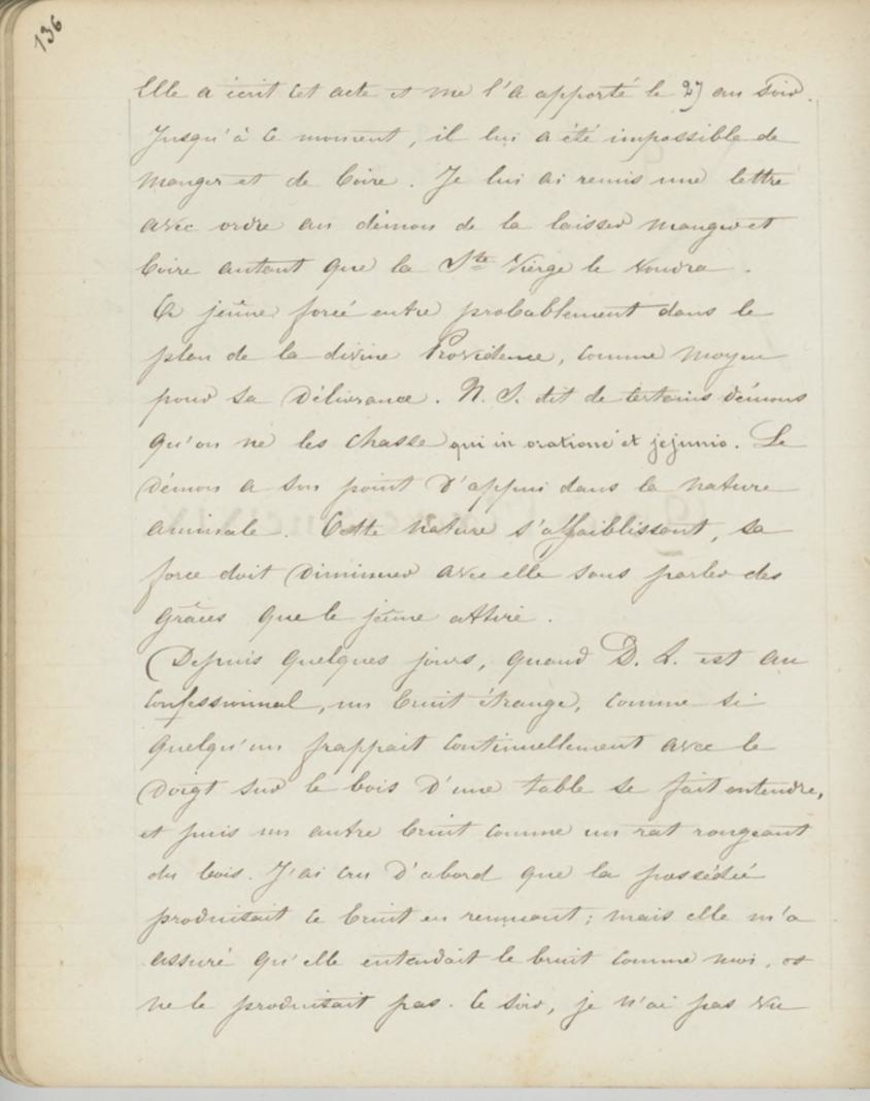 136
Elle a écrit cet acte et me l'a apporté le 27 au soir.
Jusqu'à ce moment, il lui a été impossible de
manger et de boire. Je lui ai remis une lettre
avec ordre au démon de la laisser manger et
boire autant que la Ste Vierge le voudra.
Ce jeûne forcé entre probablement dans le
plan de la divine Providence, comme moyen
pour sa délivrance. N. S. dit de certains démons
qu'on ne les chasse qui in oratione et jejunio. Le
démon a son point d'appui dans la nature
animale. Cette nature s'affaiblissant, sa
force doit diminuer avec elle sans parler des
grâces que le jeûne attire.
Depuis quelques jours, quand D. L. est au
confessionnal, un bruit étrange, comme si
quelqu'un frappait continuellement avec le
doigt sur le bois d'une table se fait entendre,
et puis un autre bruit comme un rat rongeant
du bois. J'ai cru d'abord que la possédée
produisait ce bruit en remuant; mais elle m'a
assuré qu'elle entendait le bruit comme moi, et
ne le produisait pas. Ce soir, je n'ai pas vu